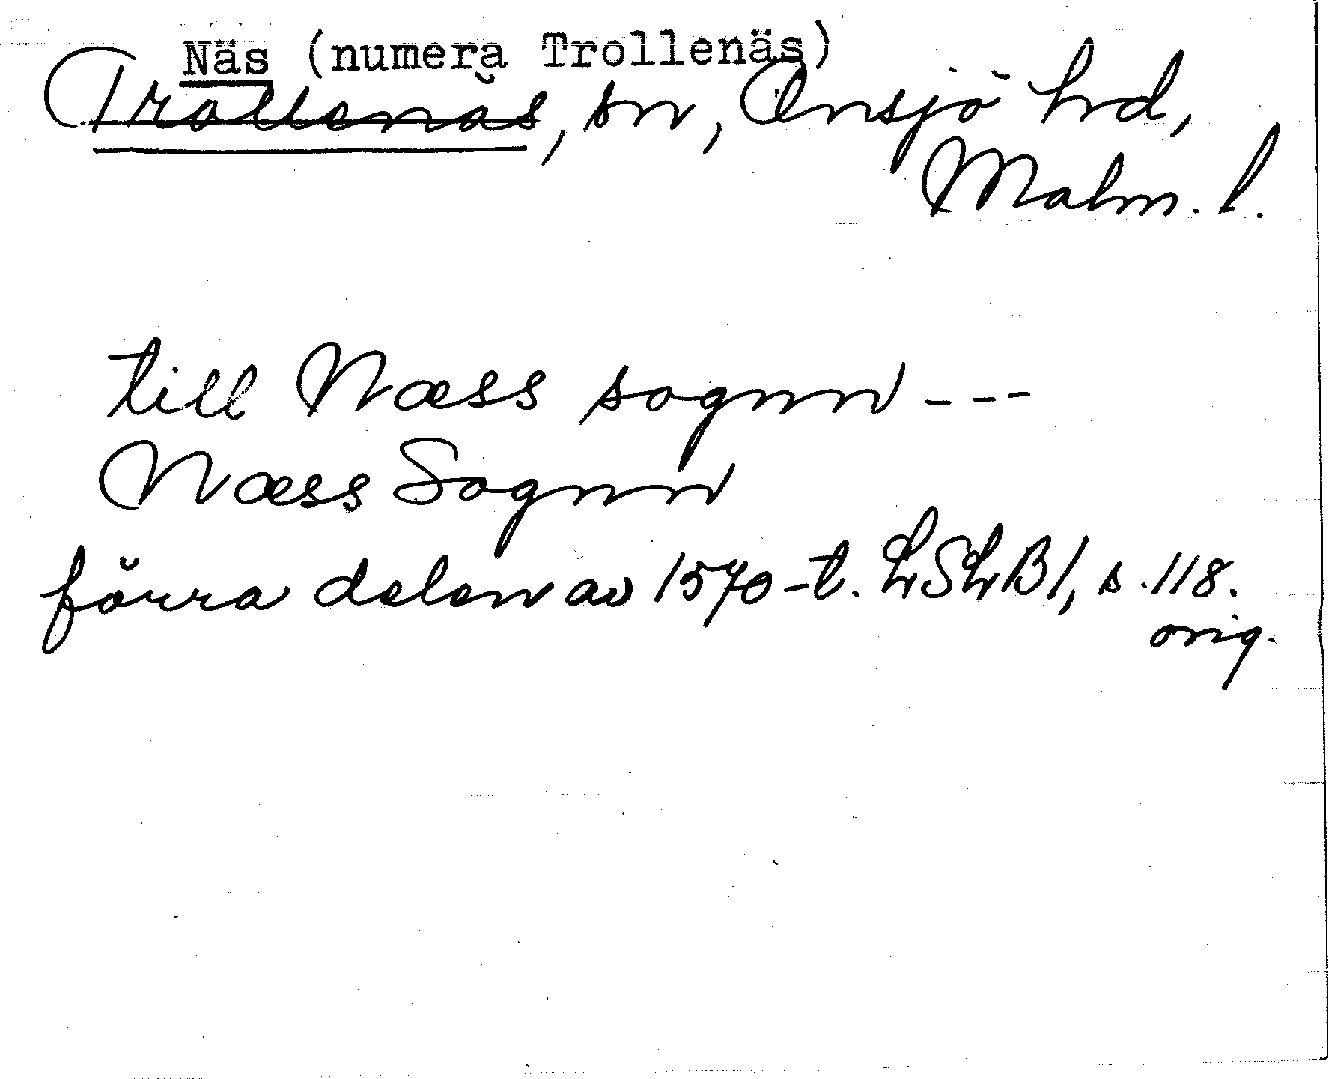 Näs (numera Trollenäs)
Trollenäs, sn, Onsjö hrd,
Malm. l.
till Næss sognn ---
Næss Sognn
förra delen av 1570-t. LSLB1, s. 118.
orig.